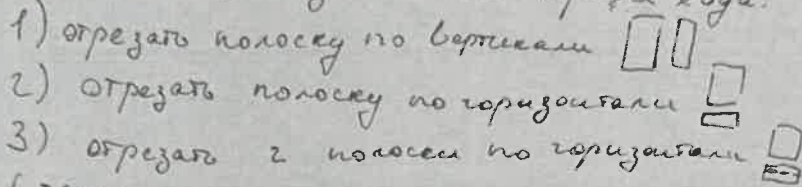 хода.
1) отрезать полоску по вертикали
2) отрезать полоску по горизонтали
3) отрезать 2 полоски по горизонтали